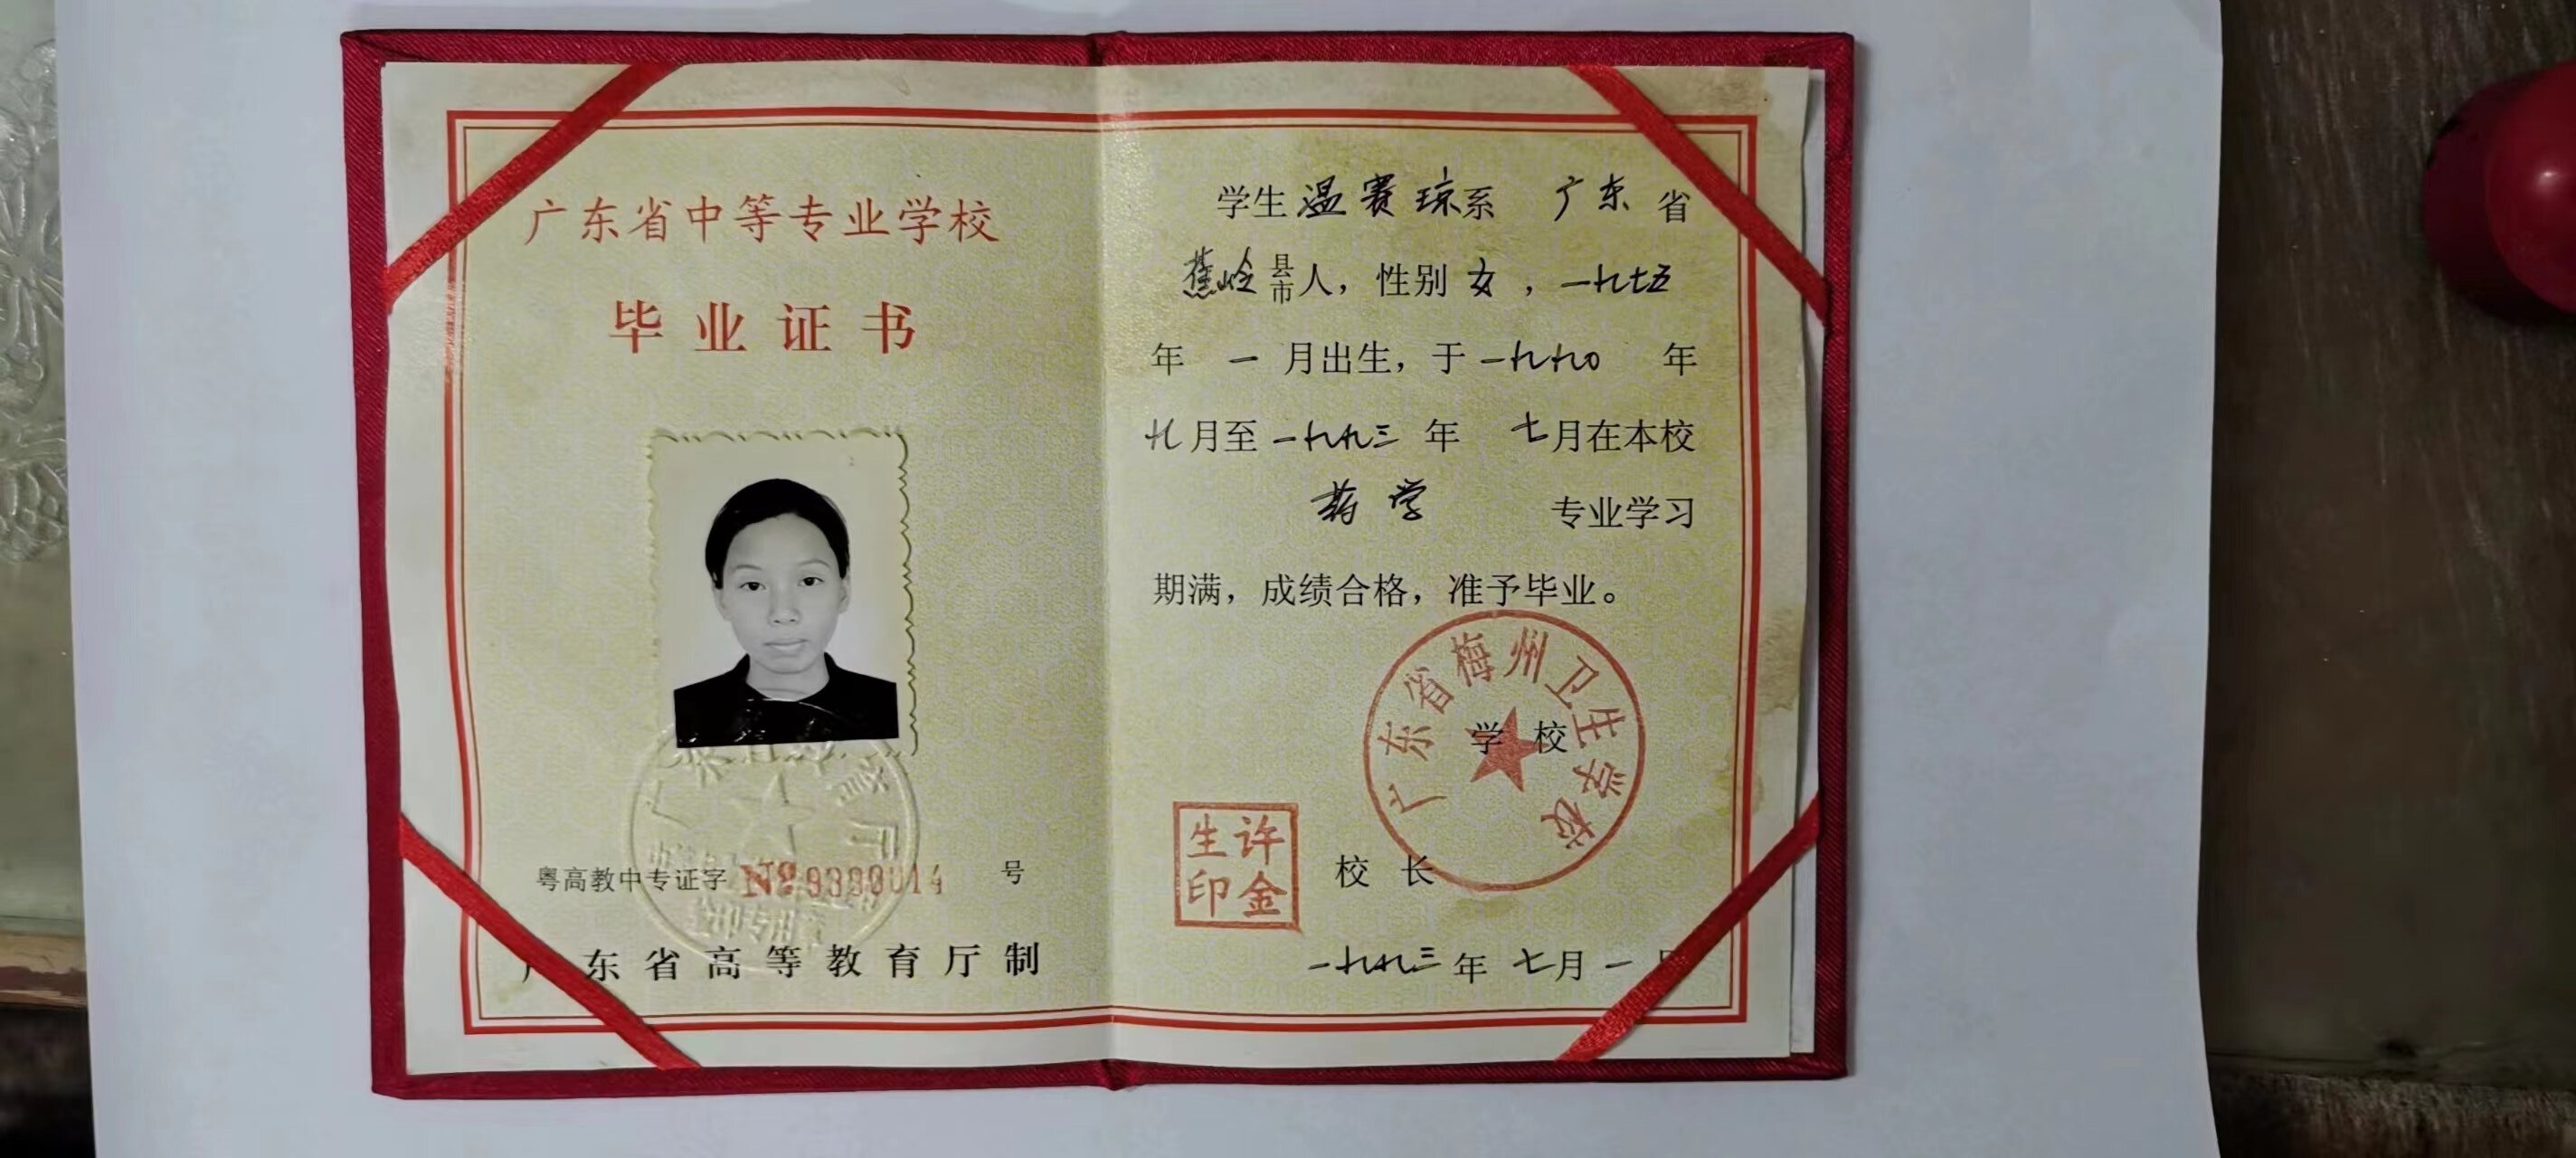 广东省中等专业学校
毕业证书
粤高教中专证字 №9390014 号
广东省高等教育厅制
学生温赛琼系 广东 省
蕉岭县市人，性别女，一九七五
年 一 月出生，于一九九０ 年
九月至一九九三年 七月在本校
药学 专业学习
期满，成绩合格，准予毕业。
广东省梅州卫生学校
学校
许金生印
校长
一九九三年七月一日